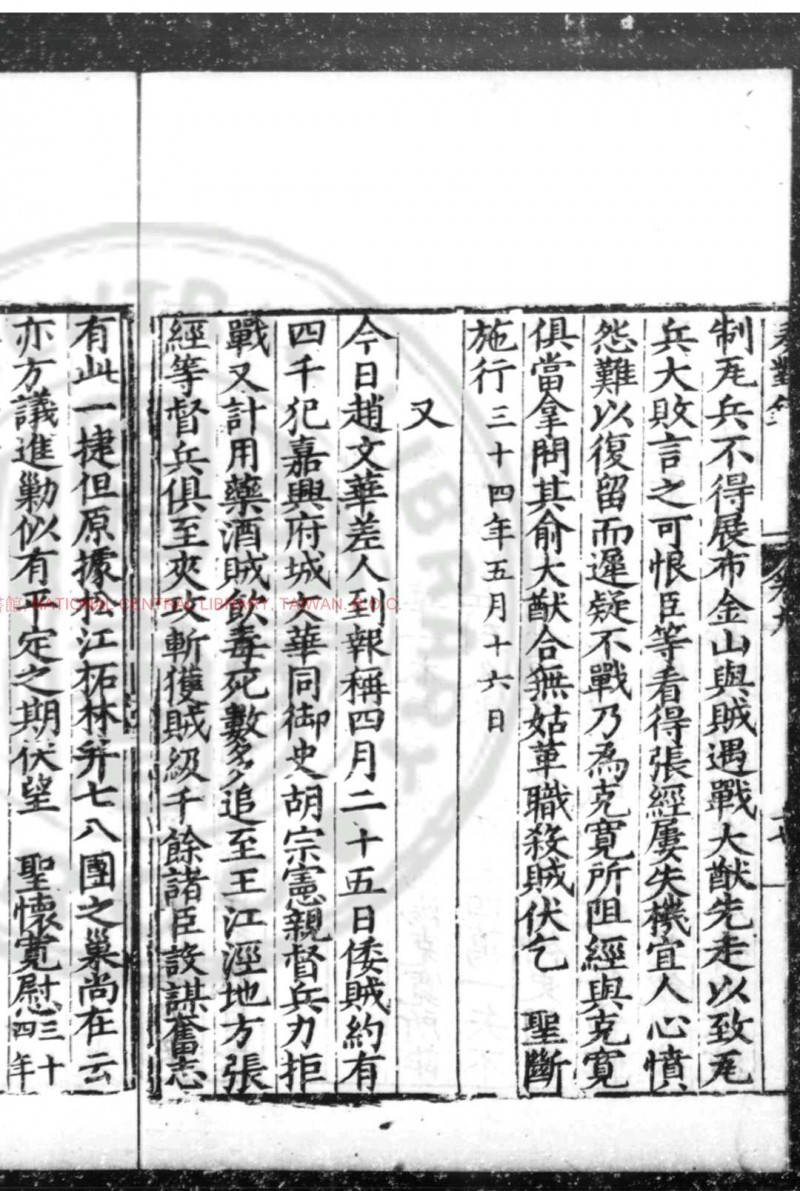 制兵不得展布金山與賊遇戰大猷先走以致
兵大敗言之可恨臣等看得張經屢失機宜人心憤
怨難以復留而遲疑不戰乃為克寬所阻經與克寬
俱當拿問其俞大猷合無姑革職殺賊伏乞 聖斷
施行三十四年五月十六日
又
今日趙文華差人到報稱四月二十五日倭賊約有
四千犯嘉興府城文華同御史胡宗憲親督兵力拒
戰又計用藥酒賊飲毒死數多追至王江涇地方張
經等督兵俱至夾攻斬獲賊級千餘諸臣設謀奮志
有此一捷但原據松江柘林并七八團之巢尚在云
亦方議進勦似有平定之期伏望 聖懷寬慰三十四年
NATIONAL CENTRAL LIBRARY, TAIWAN, R.O.C.